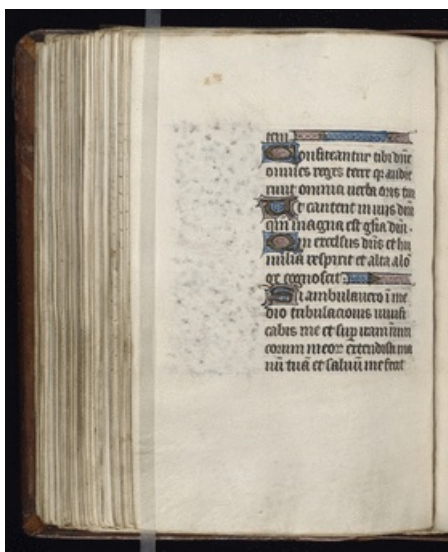 tem
Confiteantur tibi dñe
omnes reges terre qr audie
runt omnia uerba oris tui
Et cantent in uiis dñi
qm̄ magna est gl̃ia dñi.
Qm̄ excelsus dñs et hu
milia respicit et alta a lo
ge cognoscit.
Si ambulauero ĩ me
dio tribulacionis uiuifi
cabis me et sup iram inimi
corum meoꝝ extendisti ma
nũ tuã et saluũ me fecit